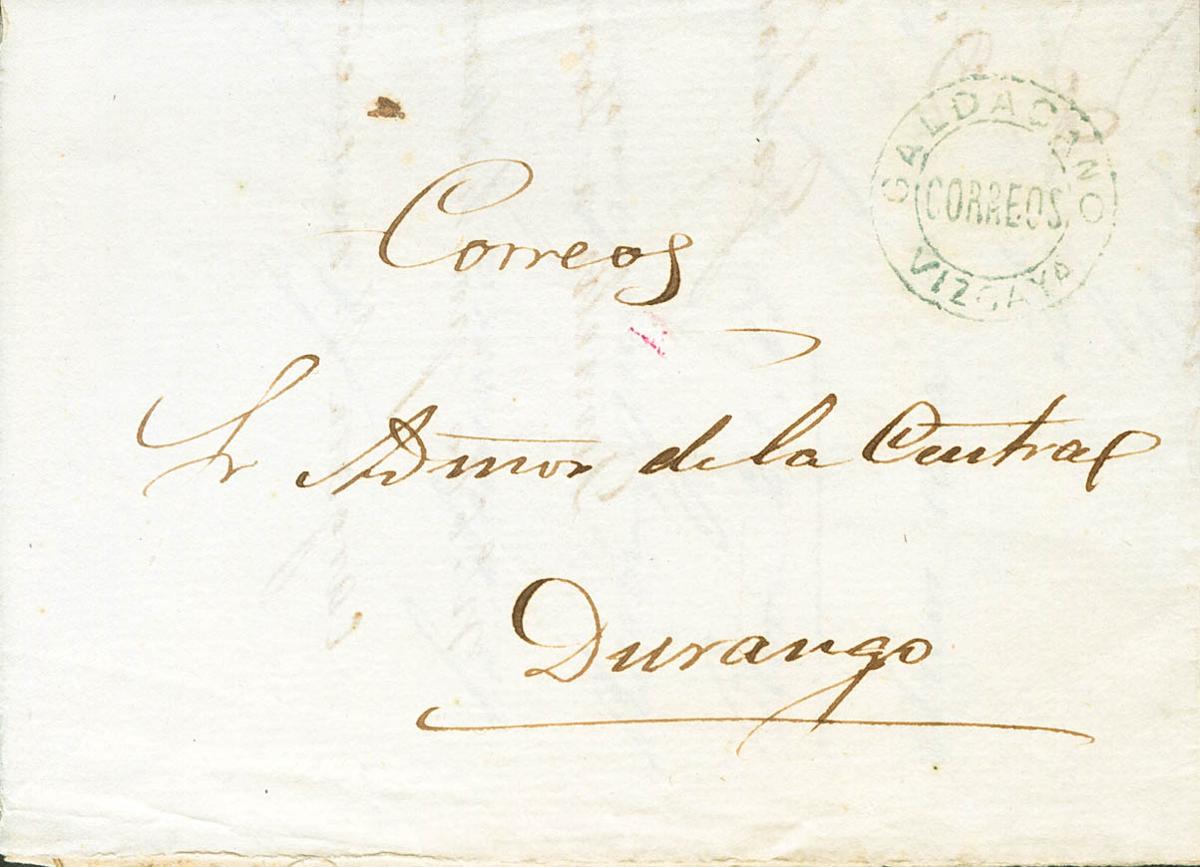 GALDACANO
CORREOS
VIZCAYA
Correos
Sr Admor de la Central
Durango